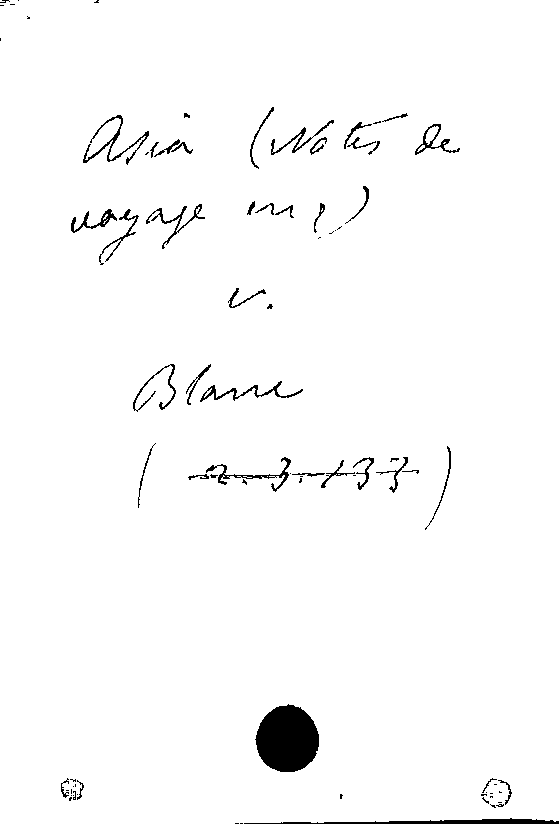 Asia (Notes de
voyage in ?)
v.
Blanc
(2.3.133)